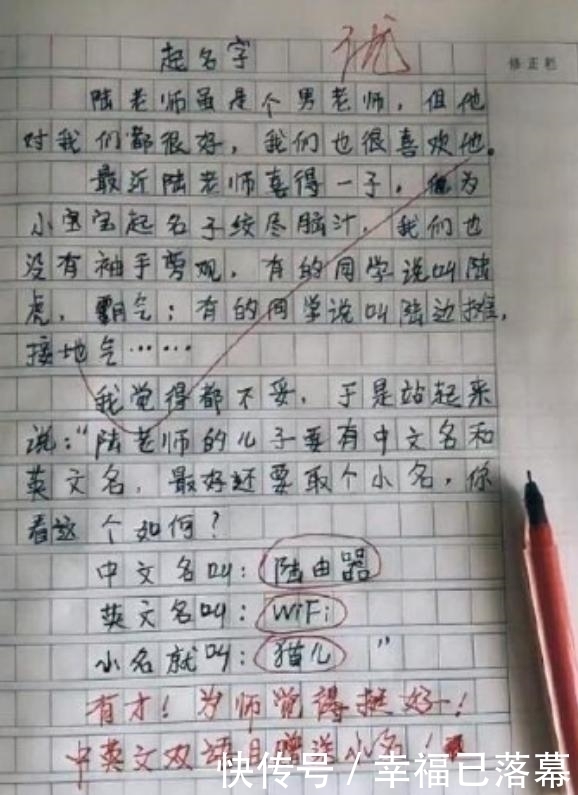 起名字
优
修正栏
陆老师虽是个男老师，但他
对我们都很好，我们也很喜欢他。
最近陆老师喜得一子，他为
小宝宝起名子绞尽脑汁，我们也
没有袖手旁观，有的同学说叫陆
虎，霸气；有的同学说叫陆边摊，
接地气……
我觉得都不妥，于是站起来
说：“陆老师的儿子要有中文名和
英文名，最好还要取个小名，你
看这个如何？
中文名叫：陆由器
英文名叫：WiFi
小名就叫：猫儿”
有才！为师觉得挺好！
中英文双语且赠送小名！
快传号/幸福已落幕